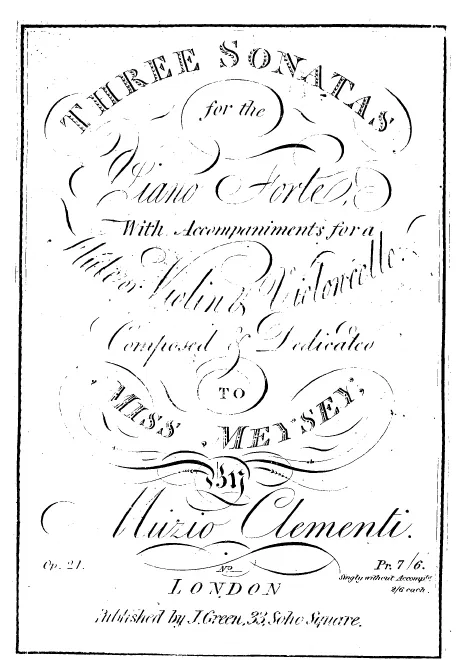 THREE SONATAS
for the
Piano Forte,
With Accompaniments for a
Flute or Violin & Violoncello.
Composed & Dedicated
TO
MISS MEYSEY,
By
Muzio Clementi.
Op. 21.
Pr. 7/6.
Singly without Accompts.
2/6 each.
No.
LONDON
Published by J. Green, 33, Soho Square.